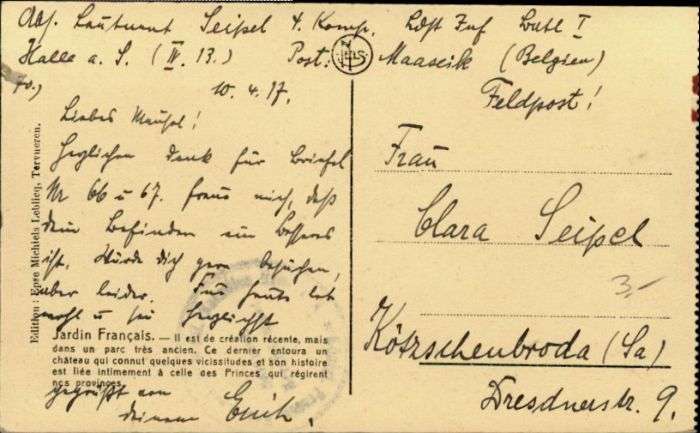 Abs. Leutnant Seipel 4. Komp. Ldst Inf Batl I
Halle a. S. (IV. 13.) Post: Maaseik (Belgien)
Feldpost!
10. 4. 17.
Liebes Meusel!
Herzlichen Dank für Briefel
Nr 66 u 67. Freue mich, daß
dein Befinden ein besseres
ist. Würde dich gern besuchen,
aber leider. Für heute leb
wohl u sei herzlichst
gegrüßt von
deinem Erich.
Frau
Clara Seipel
Kötzschenbroda (Sa)
Dresdnerstr. 9.
3-
Edition : Epse Michiels Leblicq, Tervueren.
Jardin Français. — Il est de création récente, mais
dans un parc très ancien. Ce dernier entoura un
château qui connut quelques vicissitudes et son histoire
est liée intimement à celle des Princes qui régirent
nos provinces.